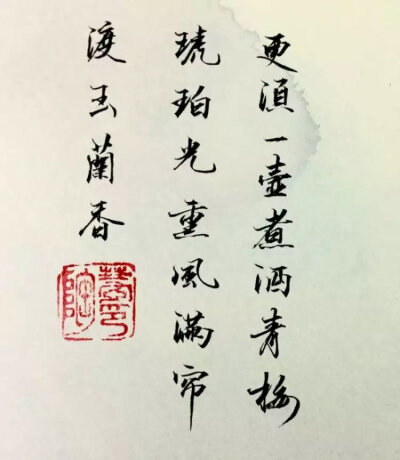 更須一壺煮酒青梅
琥珀光熏風滿帘
渡玉蘭香